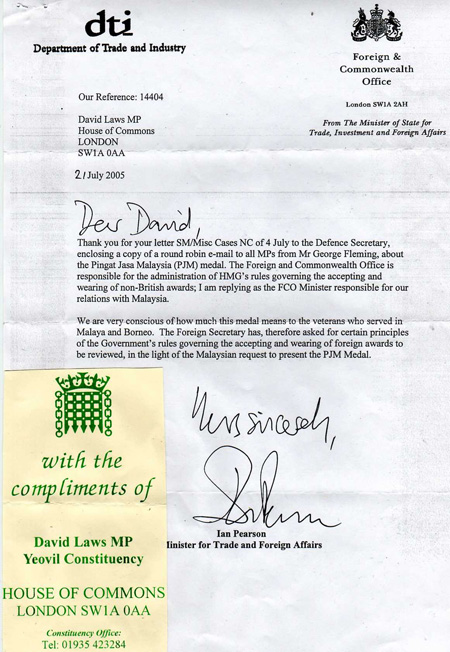 dti
Department of Trade and Industry
Foreign &
Commonwealth
Office
London SW1A 2AH
From The Minister of State for
Trade, Investment and Foreign Affairs
Our Reference: 14404
David Laws MP
House of Commons
LONDON
SW1A 0AA
21 July 2005
Dear David,
Thank you for your letter SM/Misc Cases NC of 4 July to the Defence Secretary,
enclosing a copy of a round robin e-mail to all MPs from Mr George Fleming, about
the Pingat Jasa Malaysia (PJM) medal. The Foreign and Commonwealth Office is
responsible for the administration of HMG's rules governing the accepting and
wearing of non-British awards; I am replying as the FCO Minister responsible for our
relations with Malaysia.
We are very conscious of how much this medal means to the veterans who served in
Malaya and Borneo. The Foreign Secretary has, therefore asked for certain principles
of the Government's rules governing the accepting and wearing of foreign awards to
be reviewed, in the light of the Malaysian request to present the PJM Medal.
Yours sincerely,
Ian Pearson
Minister for Trade and Foreign Affairs
with the
compliments of
David Laws MP
Yeovil Constituency
HOUSE OF COMMONS
LONDON SW1A 0AA
Constituency Office:
Tel: 01935 423284